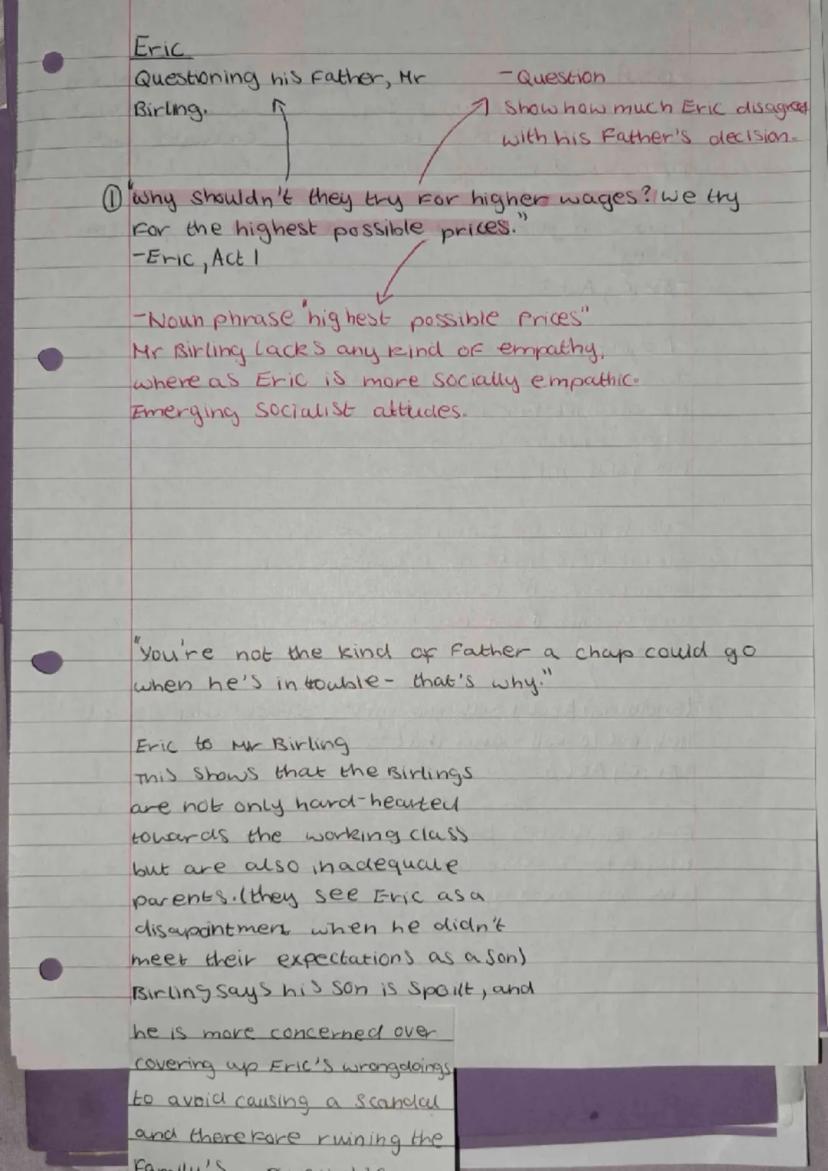 Eric
Questioning his Father, Mr
Birling.
- Question
Show how much Eric disagrees
with his Father's decision.
① "Why shouldn't they try for higher wages? We try
for the highest possible prices."
- Eric, Act 1
- Noun phrase "highest possible prices"
Mr Birling lacks any kind of empathy,
where as Eric is more socially empathic.
Emerging socialist attudes.
"You're not the kind of Father a chap could go
when he's in touble - that's why."
Eric to Mr Birling
This shows that the Birlings
are not only hard-hearted
towards the working class
but are also inadequate
parents. (they see Eric as a
disapointment when he didn't
meet their expectations as a son)
Birling says his son is spoilt, and
he is more concerned over
covering up Eric's wrongdoings
to avoid causing a scandal
and therefore ruining the
Family's